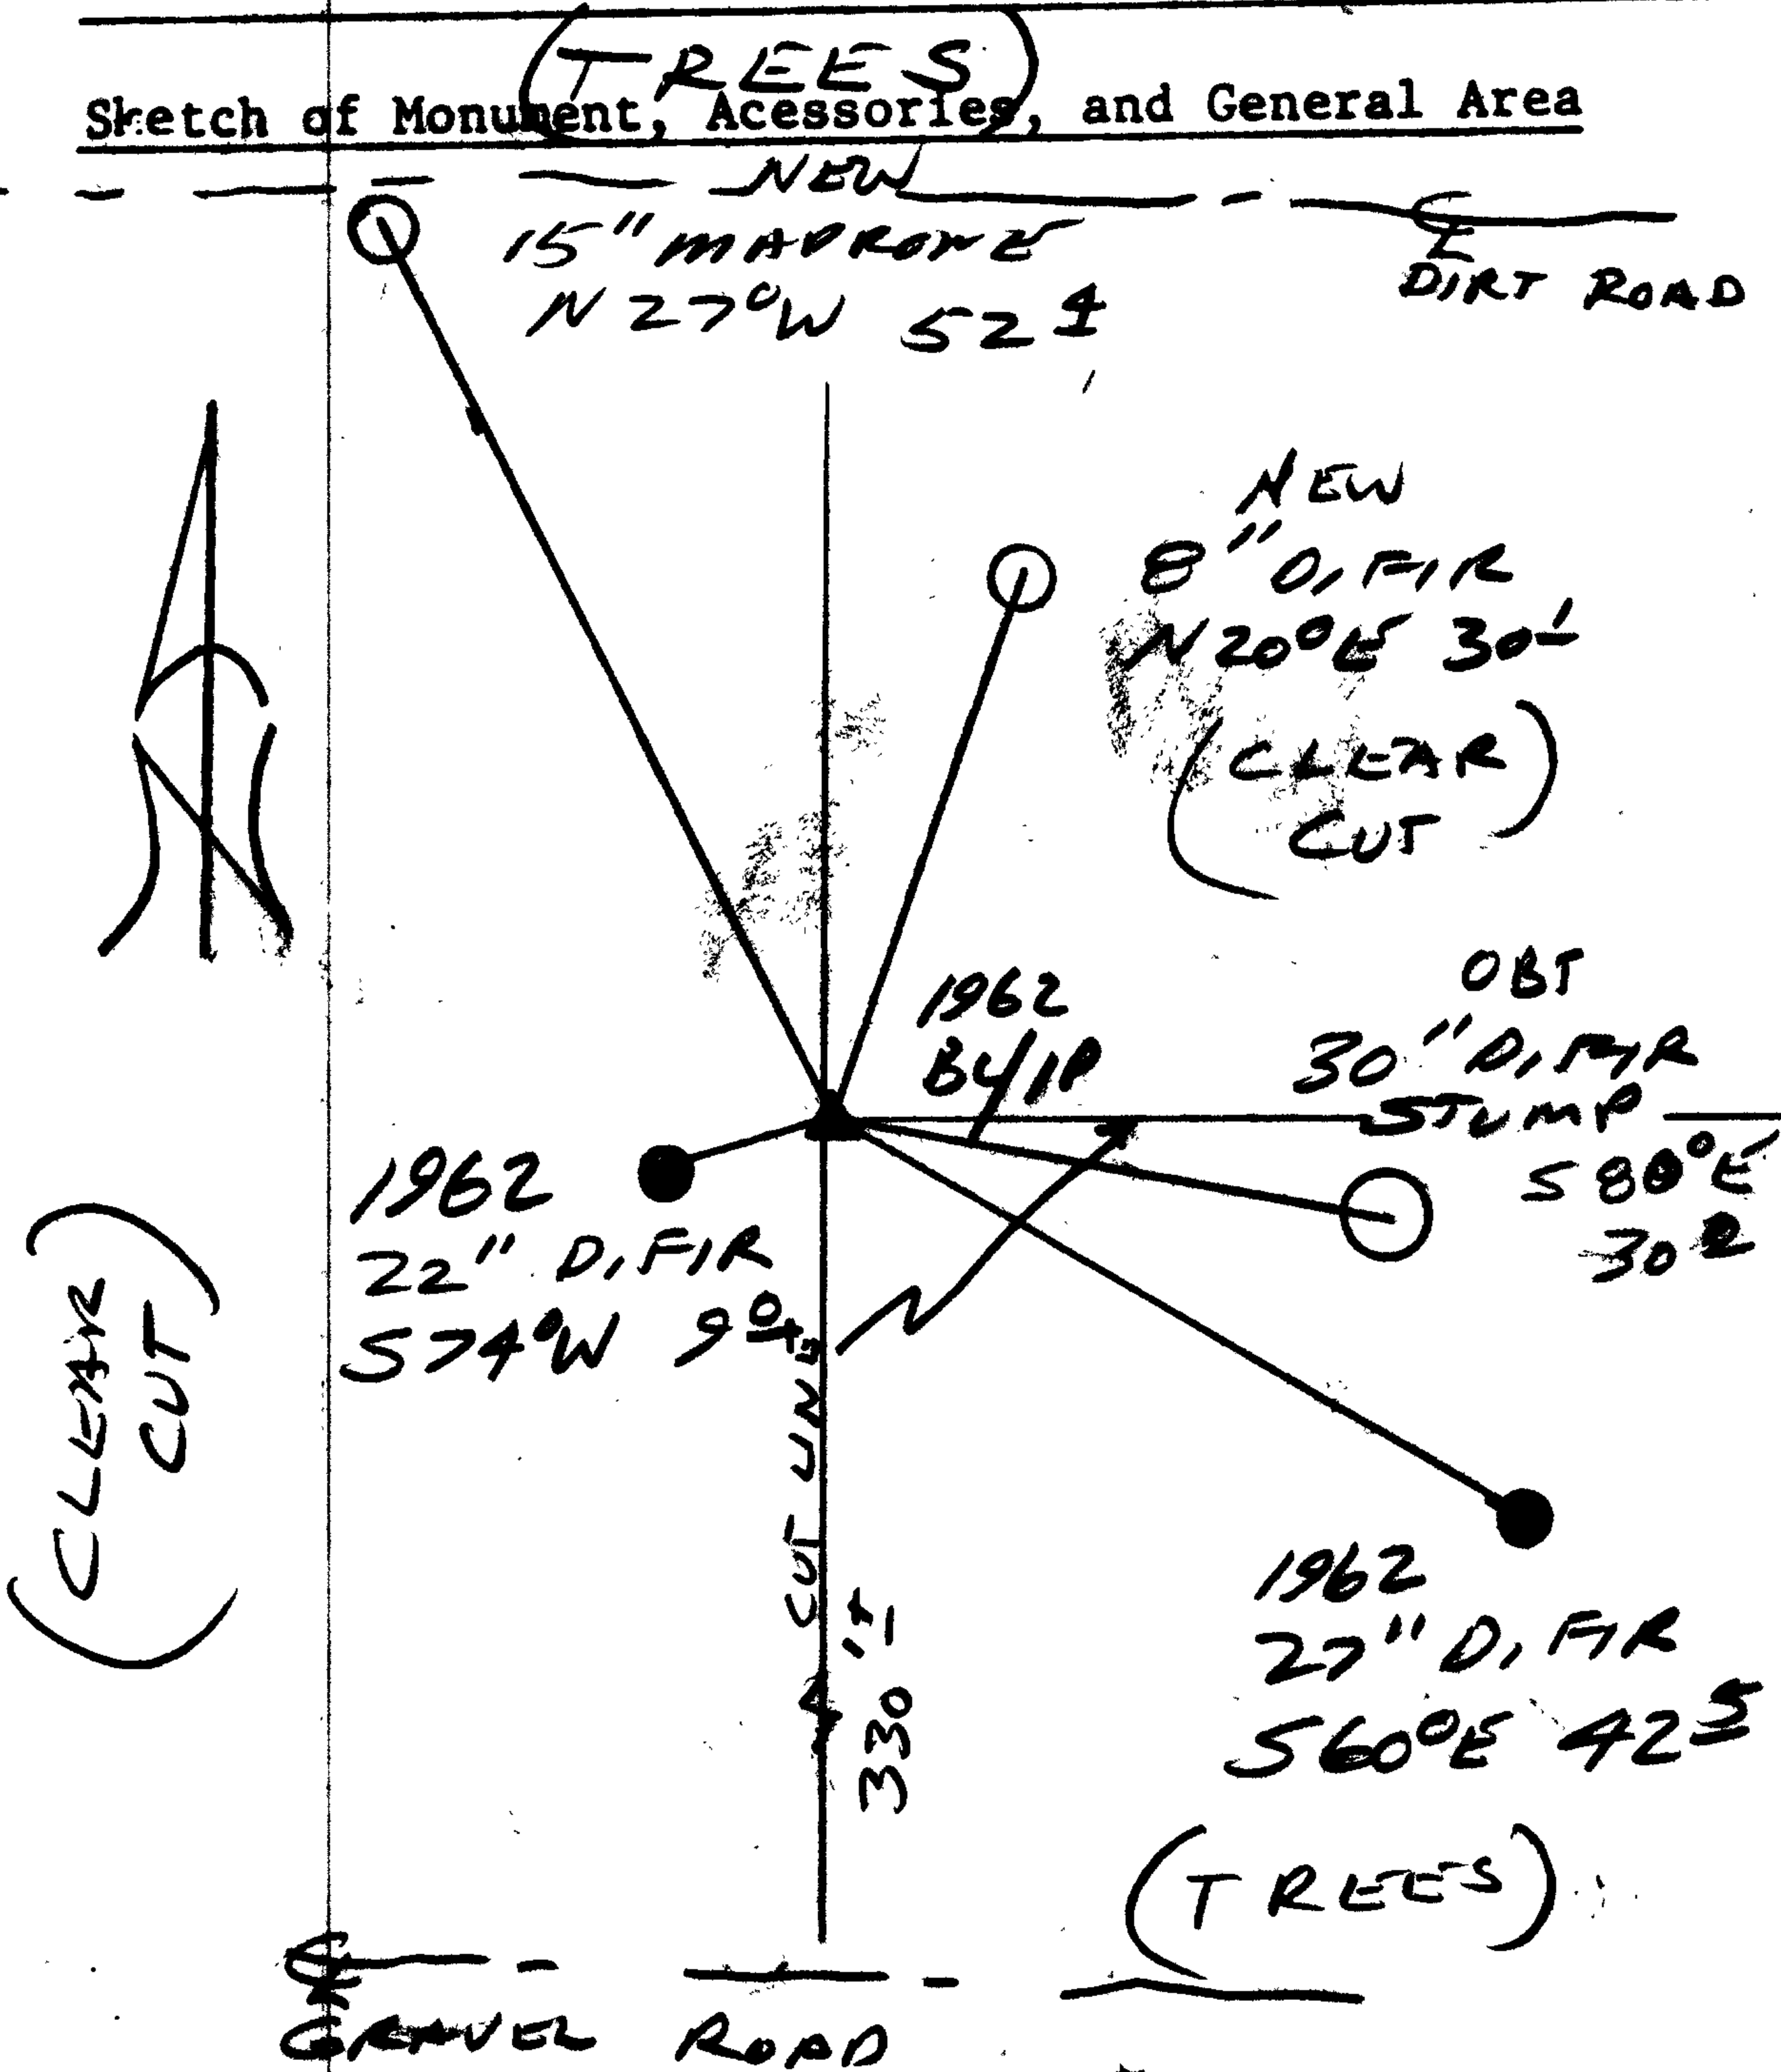 (TREES)
Sketch of Monument, Acessories, and General Area
NEW
15" MADRONE
N 27°W 52 4
℄
DIRT ROAD
NEW
8" D, FIR
N20°E 30 1
(CLEAR
CUT)
1962
BY/IP
OBT
30" D, FIR
STUMP
S 80°E
30 2
1962
22" D, FIR
S74°W 9 0
(CLEAR
CUT)
N
CUT LINE
330'±
1962
27" D, FIR
S60°E 42 5
(TREES)
℄
GRAVEL ROAD